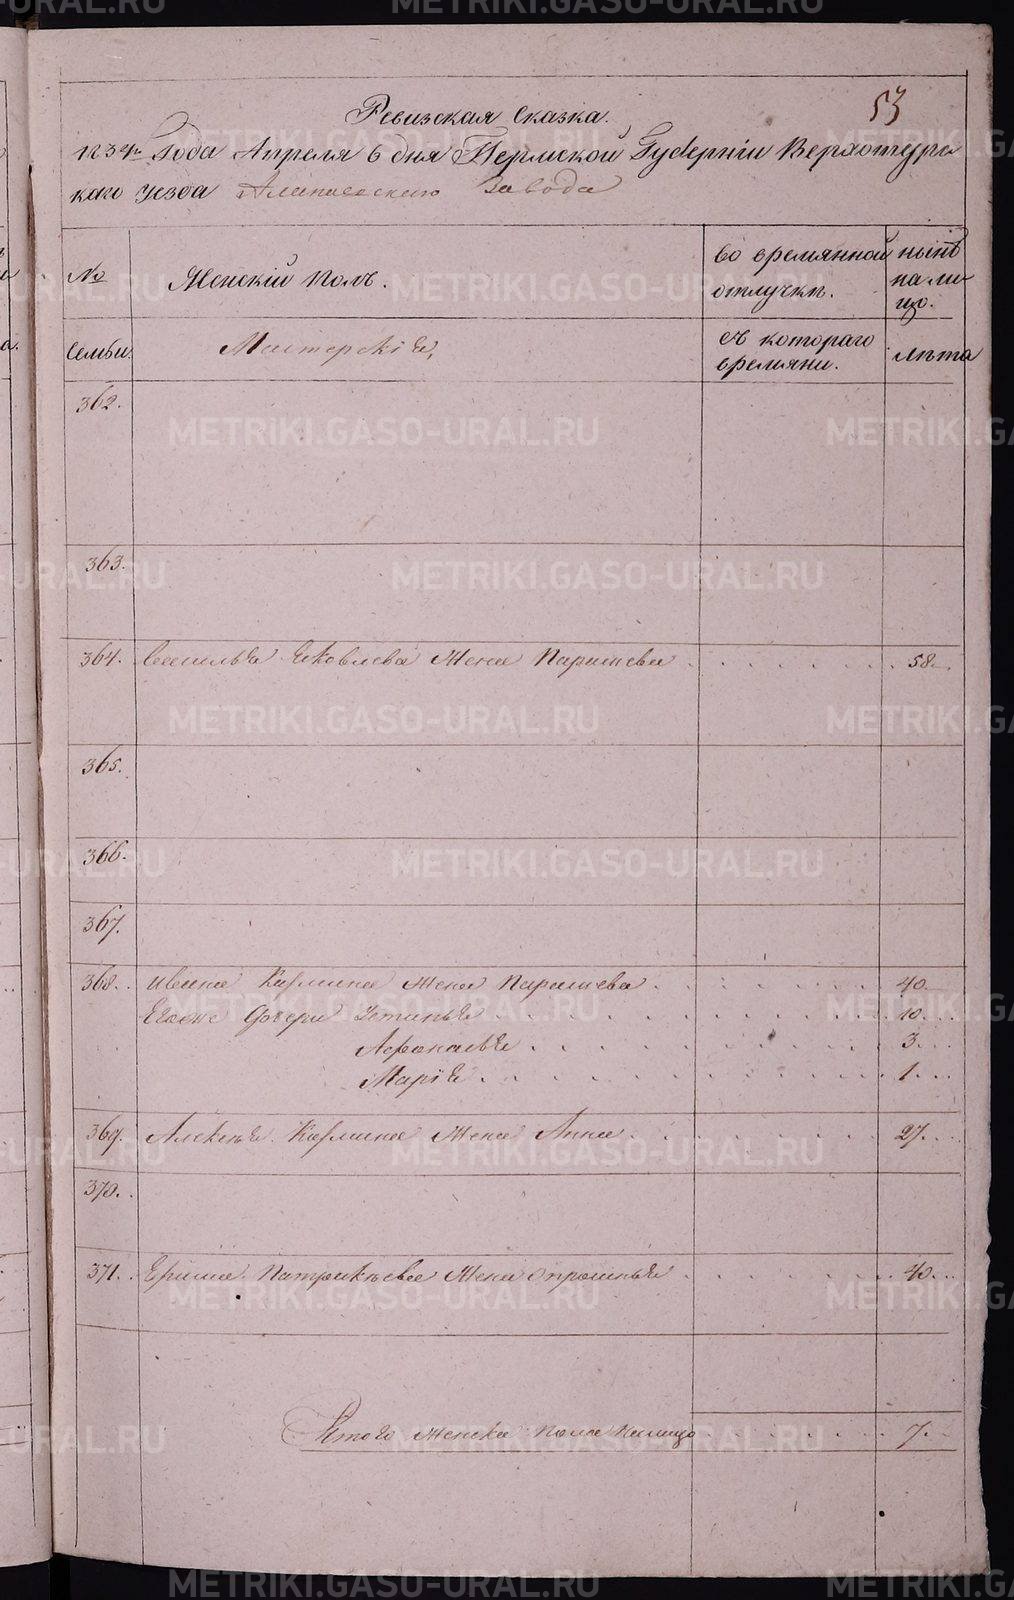 53
Ревизская Сказка.
1834го Года Апреля 6 дня Пермской Губерніи Верхотурс
каго уезда Алапаевскаго Завода
№ Женскій полъ. во времянной отлучкѣ. нынѣ на лицо.
Семьи. Мастерскія, съ котораго времяни. лѣта
362.
363.
364. Василья Яковлева Жена Парасковья 58.
365.
366.
367.
368. Ивана Жена 40.
Его же дочери Устинья 10.
Афонасья 3.
Марія 1.
369. Алексѣя Жена Анна 27.
370.
371. Патракѣева Жена Опросинья 40.
Итого женска пола налицо 7.
METRIKI.GASO-URAL.RU